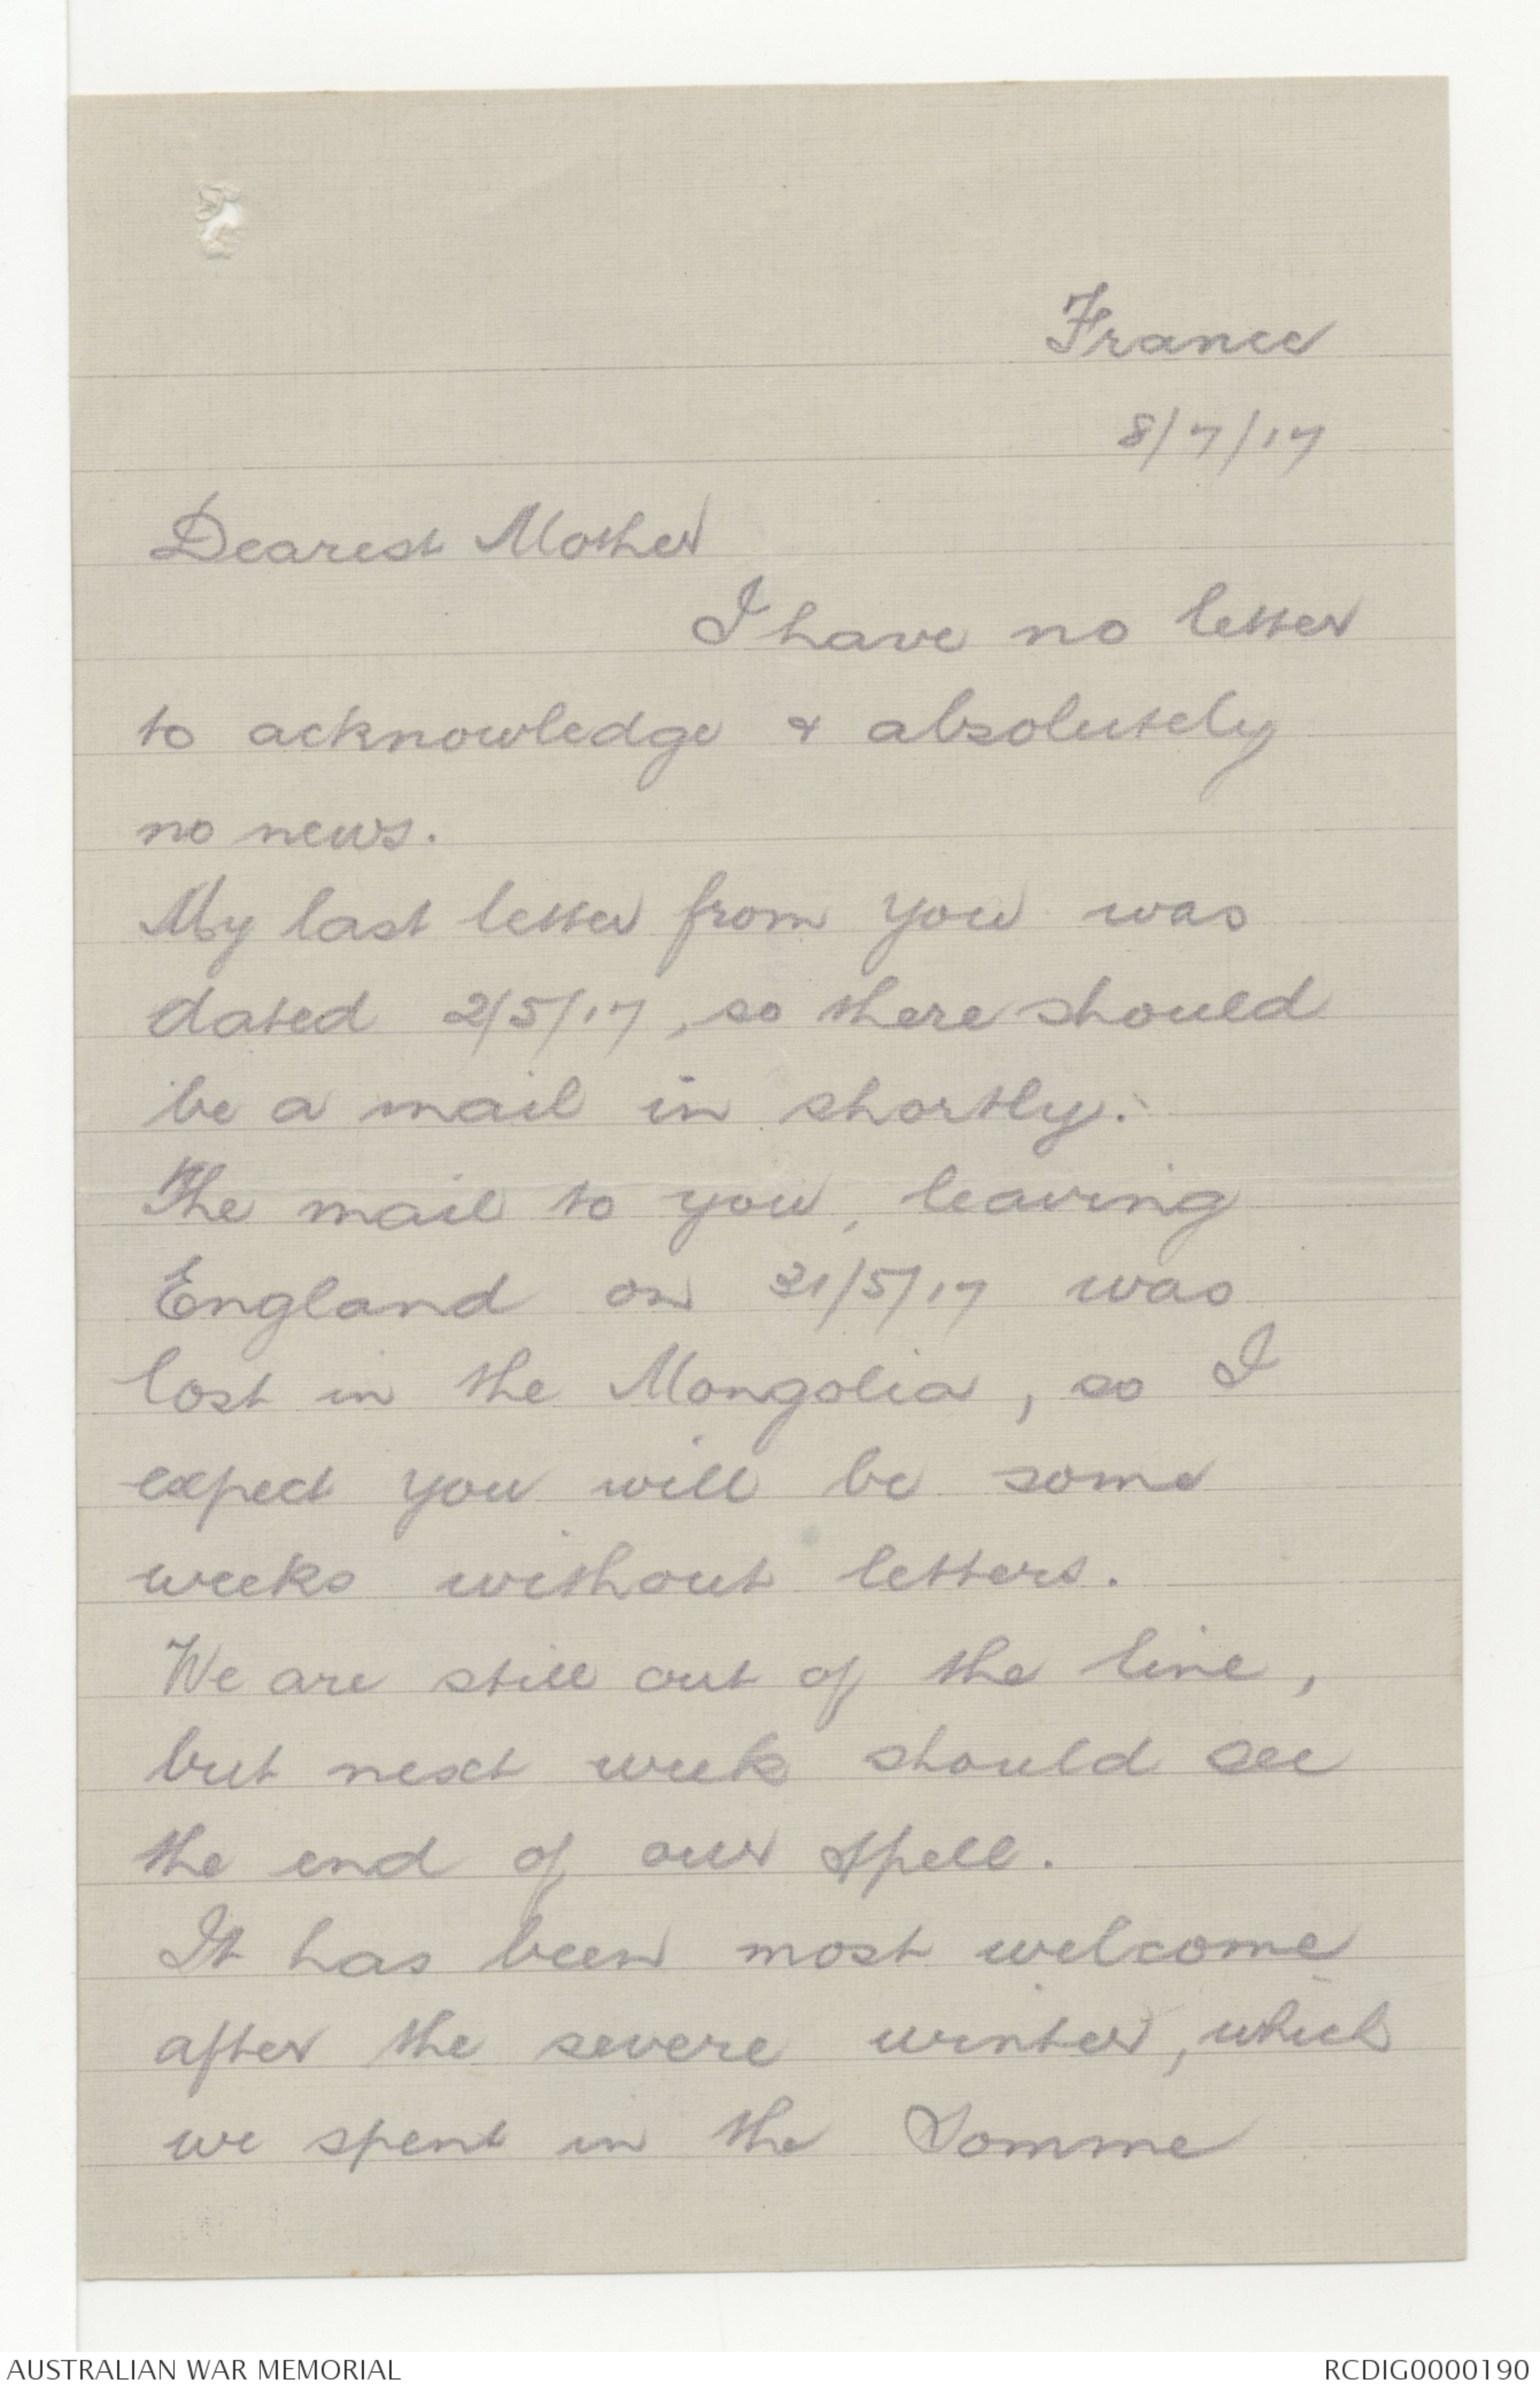 France
8/7/17
Dearest Mother
I have no letter
to acknowledge & absolutely
no news.
My last letter from you was
dated 2/5/17, so there should
be a mail in shortly.
The mail to you, leaving
England on 31/5/17 was
lost in the Mongolia, so I
expect you will be some
weeks without letters.
We are still out of the line,
but next week should see
the end of our spell.
It has been most welcome
after the severe winter, which
we spent in the Somme
AUSTRALIAN WAR MEMORIAL
RCDIG0000190